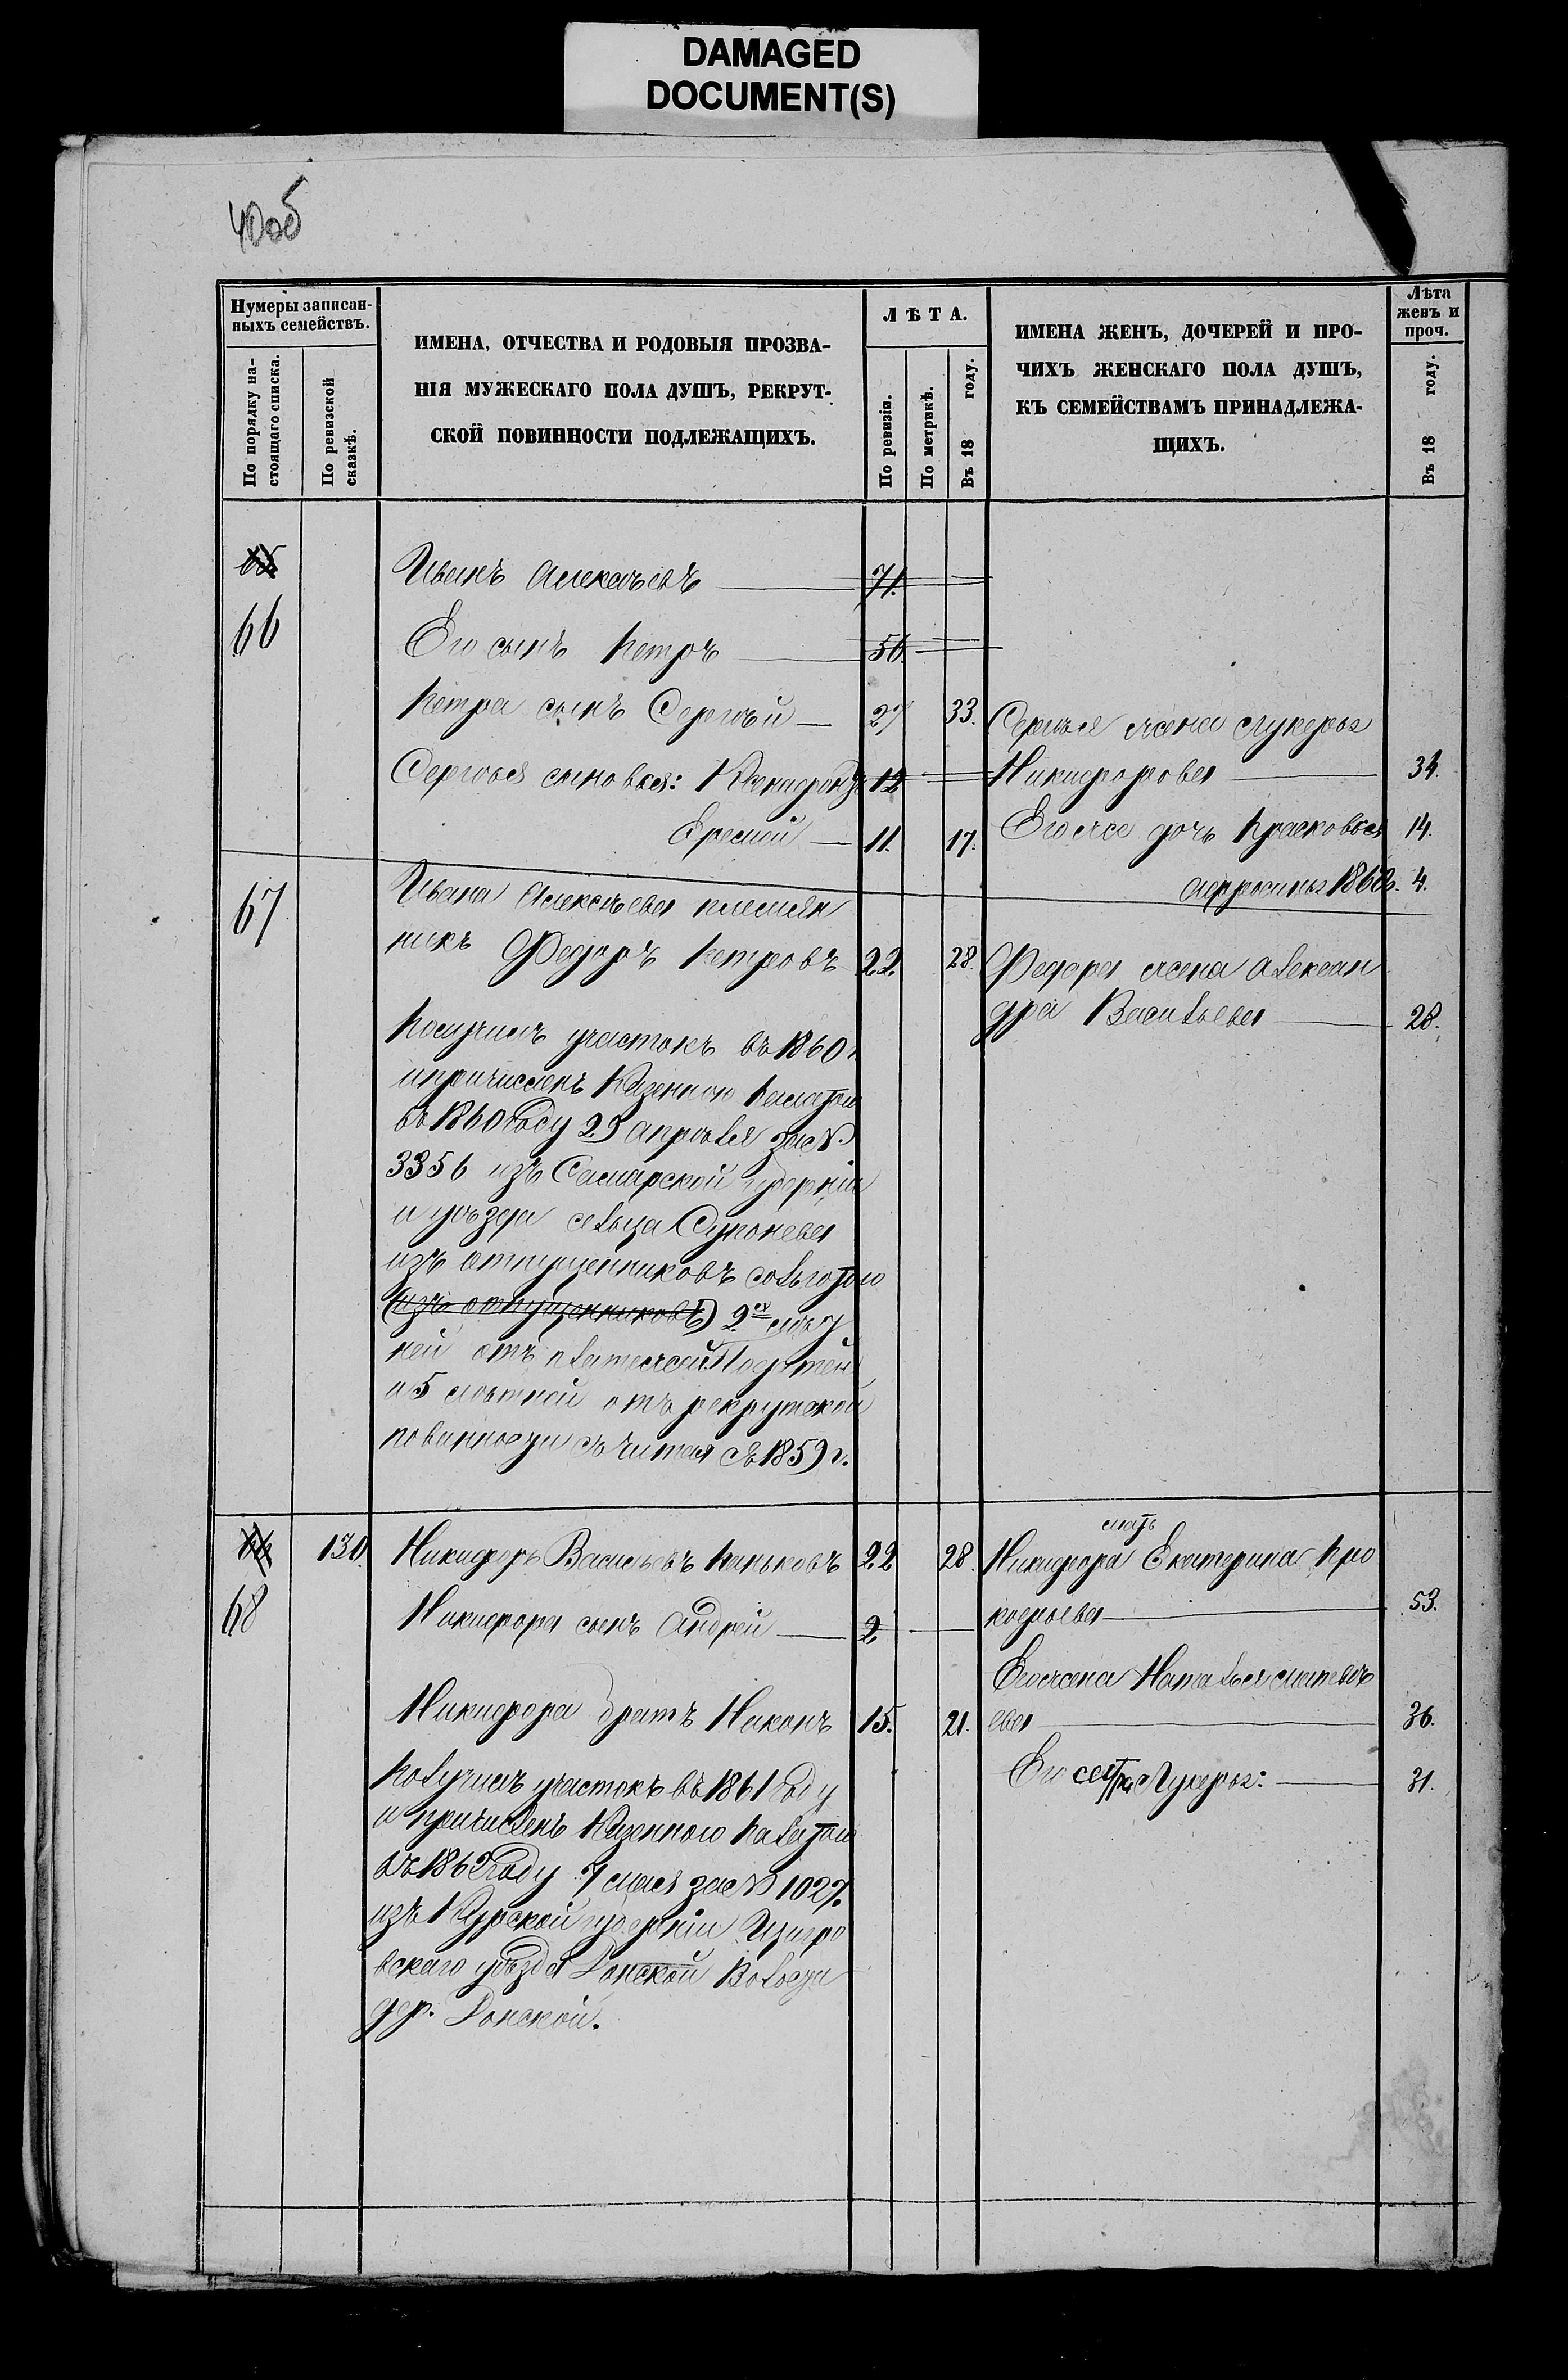 DAMAGED
DOCUMENT(S)
40об
Нумеры записан-
ныхъ семействъ.
По порядку на-
стоящаго списка.
По ревизской
сказкѣ.
ИМЕНА, ОТЧЕСТВА И РОДОВЫЯ ПРОЗВА-
НІЯ МУЖЕСКАГО ПОЛА ДУШЪ, РЕКРУТ-
СКОЙ ПОВИННОСТИ ПОДЛЕЖАЩИХЪ.
ЛѢТА.
По ревизіи.
По метрикѣ.
Въ 18 году.
ИМЕНА ЖЕНЪ, ДОЧЕРЕЙ И ПРО-
ЧИХЪ ЖЕНСКАГО ПОЛА ДУШЪ,
КЪ СЕМЕЙСТВАМЪ ПРИНАДЛЕЖА-
ЩИХЪ.
Лѣта
женъ и
проч.
Въ 18 году.
65
66
Иванъ Алексѣевъ 71.
Его сынъ Петръ 56.
Петра сынъ Сергѣй 27 33.
Сергѣя сыновья: 12
Еремей 11. 17.
Сергѣя жена Лукерья
Никифорова 34.
Его же дочь Прасковья 14.
Афросинья 1860г. 4.
67
Ивана Алексѣева племян
никъ Федоръ Петровъ 22 28.
Федора жена Алексан
дра Васильева 28.
Получилъ участокъ въ 1860 г
и причисленъ Казенною Палатою
въ 1860 году 29 апрѣля за №
3356 изъ Самарской губерніи
и уѣзда сельца Супонева
изъ отпущенниковъ сольготою
(изъ отпущенниковъ) 2ex лѣт
ней отъ платежей Податей
и 5 лѣтней отъ рекрутской
повинности считая съ 1859 г.
68
130.
Никифоръ Васильевъ Паньковъ 22 28.
Никифора сынъ Андрей 2
Никифора братъ Никонъ 15. 21.
мать
Никифора Екатерина Про
кофьева 53.
Его жена Наталья Матвѣ
ева 36.
Его сестра Лукерья: 31.
Получилъ участокъ въ 1861 году
и причисленъ Казенною Палатою
въ 1862 году 7 мая за № 1027.
изъ Курской губерніи Щигро
вскаго уѣзда Донской Волости
дер. Донской.